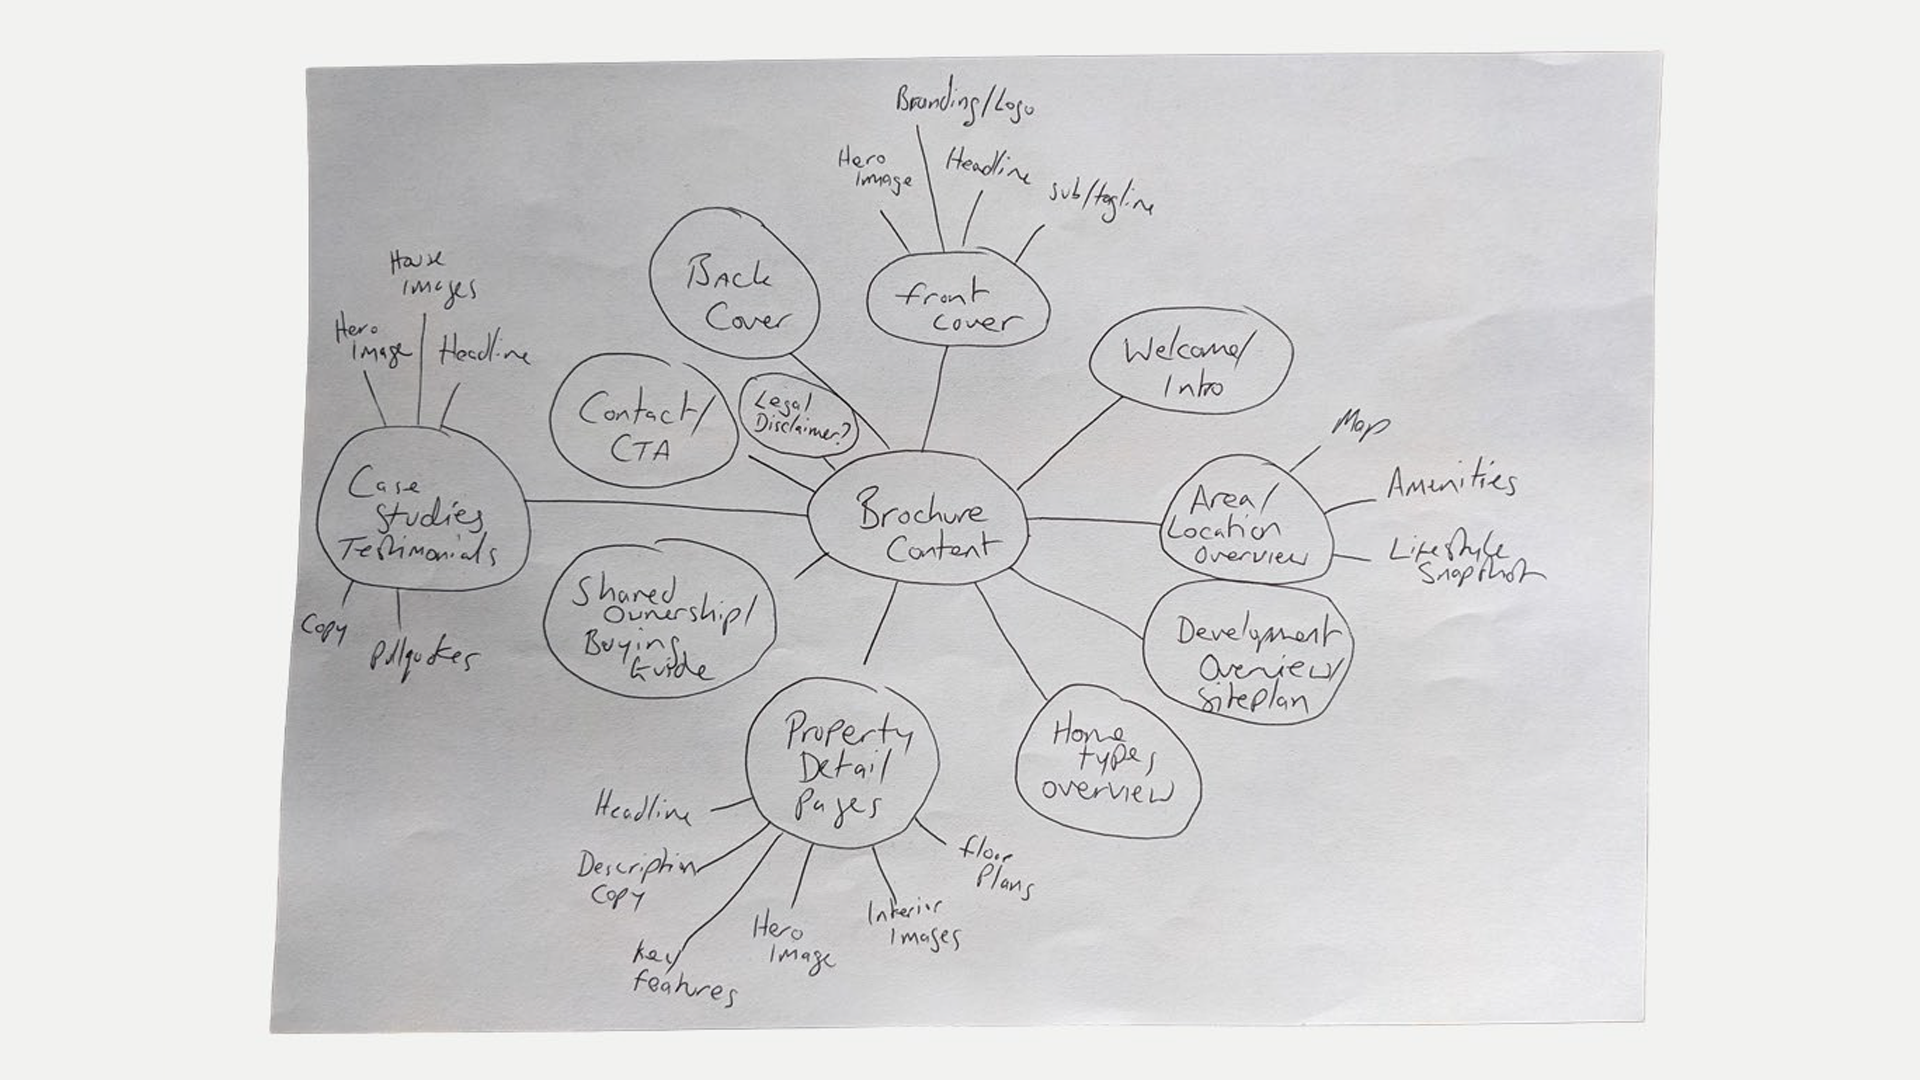 Branding/Logo
Hero
Image
Headline
sub/tagline
front
cover
Back
Cover
Welcome/
Intro
Map
Area/
Location
Overview
Amenities
Lifestyle
Snapshot
Development
Overview/
Siteplan
Home
types
overview
Property
Detail
Pages
floor
Plans
Interior
Images
Hero
Image
Key
features
Description
Copy
Headline
Shared
Ownership/
Buying
Guide
Case
Studies
Testimonials
House
Images
Hero
Image
Headline
Copy
Pullquotes
Contact/
CTA
Legal
Disclaimer?
Brochure
Content